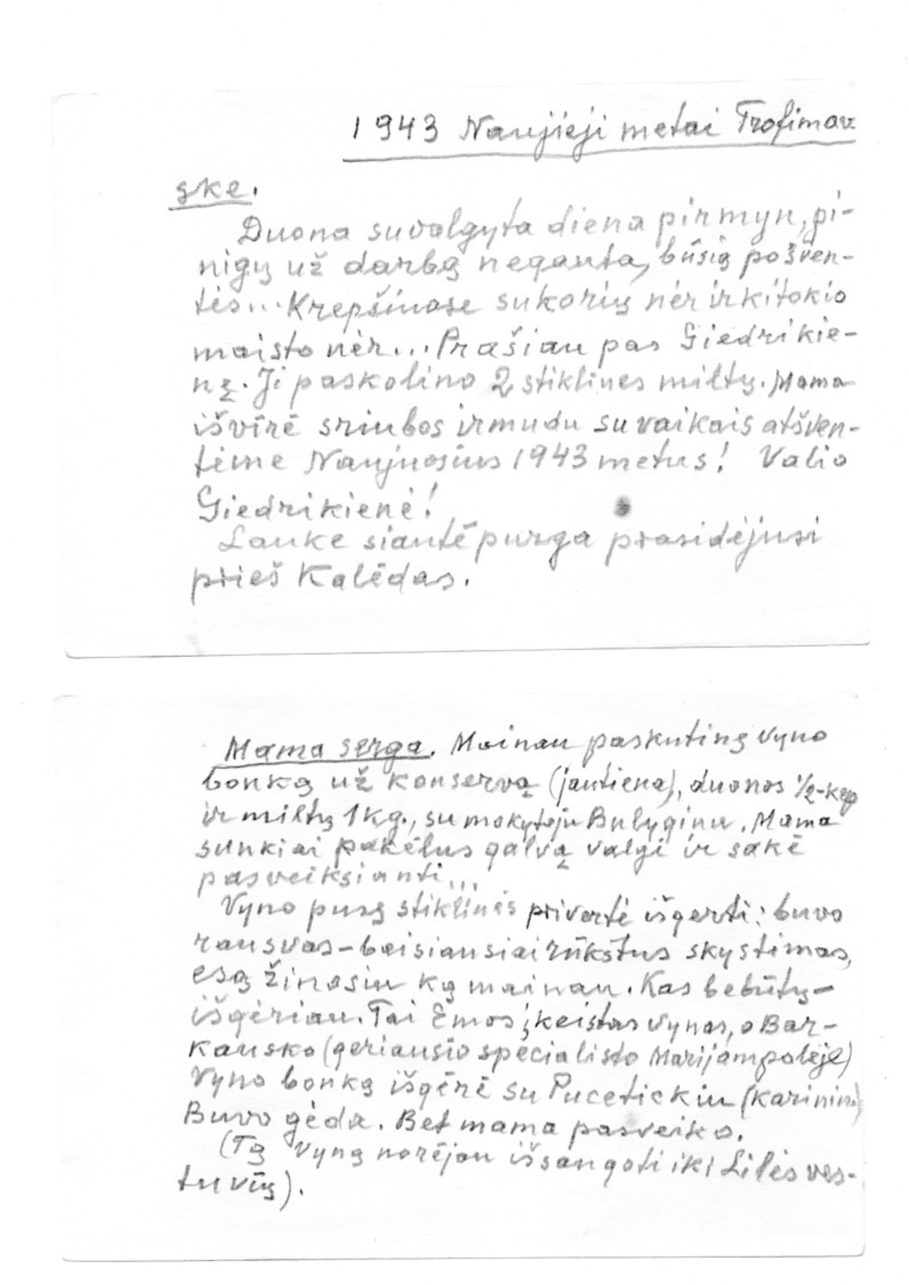 1943 Naujieji metai Trofimov
ske.
Duona suvalgyta diena pirmyn, pi-
nigų už darbą negauta, būsią pošven-
tės... Krepšiuose sukorių nėr ir kitokio
maisto nėr... Prašiau pas Giedrikie-
nę. Ji paskolino 2 stiklines miltų. Mama
išvirė sriubos ir mudu su vaikais atšven-
tėme Naujuosius 1943 metus! Valio
Giedrikienė!
Lauke siautė purga prasidėjusi
prieš Kalėdas.
Mama serga. Mainau paskutinę vyno
bonką už konservą (jautiena), duonos 1/2-kep
ir miltų 1kg., su mokytoju Bulyginu. Mama
sunkiai pakėlus galvą valgė ir sakė
pasveiksianti...
Vyno pusę stiklinės privertė išgerti: buvo
rausvas-baisiausiai rūkštus skystimas,
esą žinosiu ką mainau. Kas bebūtų-
išgėriau. Tai Emos įkeistas vynas, o Bar-
kausko (geriausio specialisto Marijampolėje)
vyno bonką išgėrė su Pucetickiu (karinin)
Buvo gėda. Bet mama pasveiko.
(Tą vyną norėjau išsaugoti iki Lilės ves-
tuvių).